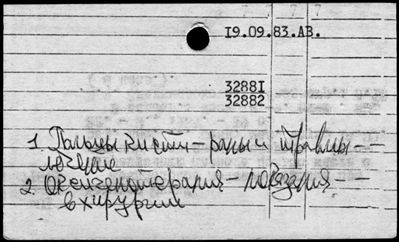 19.09.83.АВ.
32881
32882
1. Пальцы кисти - раны и травмы -
лечение
2. Оксигенотерапия -
в хирургии